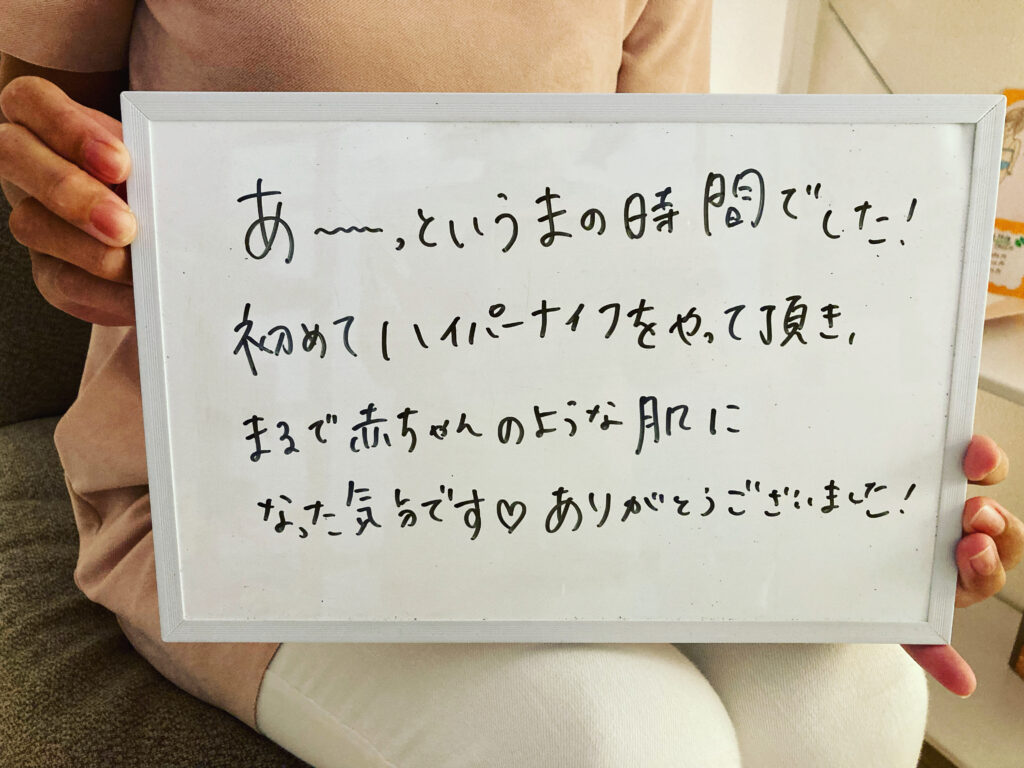 あ〜〜っというまの時間でした！
初めてハイパーナイフをやって頂き、
まるで赤ちゃんのような肌に
なった気分です♡ありがとうございました！